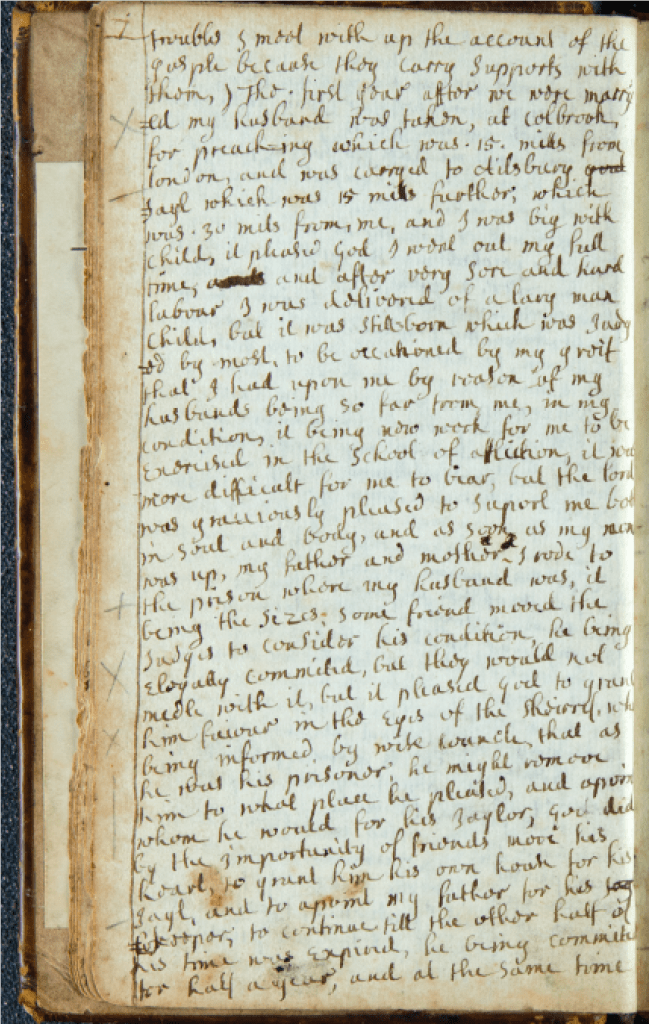 7
trouble I meet with up the account of the
gosple because they carry Supports with
them,) The first year after we were marry
ed my husband was taken, at Colbrook,
for preaching which was .15. mills from
london, and was carryed to Ailsbury goal
Jayl which was 15 mills further, which
was .30 mils from, me, and I was big with
child, it pleased God I went out my full
time, and after very Sore and hard
labour I was delivered of a larg man
Child, but it was Stillborn which was Judg
ed by most, to be occationed by my greif
that I had upon me by reason of my
husbands being so far from me, in my
condition, it being new work for me to be
Exercised in the School of affliction, it was
more difficult for me to bear, but the lord
was graciously pleased to Suport me both
in Soul and body, and as Soon as my mon
was up, my father and mother I rode to
the prison where my husband was, it
being the Sizes: Some friend moved the
Judges to consider his condition, he being
Elegally committed, but they would not
medle with it, but it pleased god to grant
him favour in the Eyes of the Sheirref, who
being informed by wise councle, that as
he was his prisoner, he might remove
him to what place he pleased, and apoint
whom he would for his Jaylor, God did
by the Importunity of friends move his
heart, to grant him his own house for his
Jayl, and to apoint my father for his
keeper, to continue till the other half of
his time was Expired, he being committed
for half a year, and at the Same time